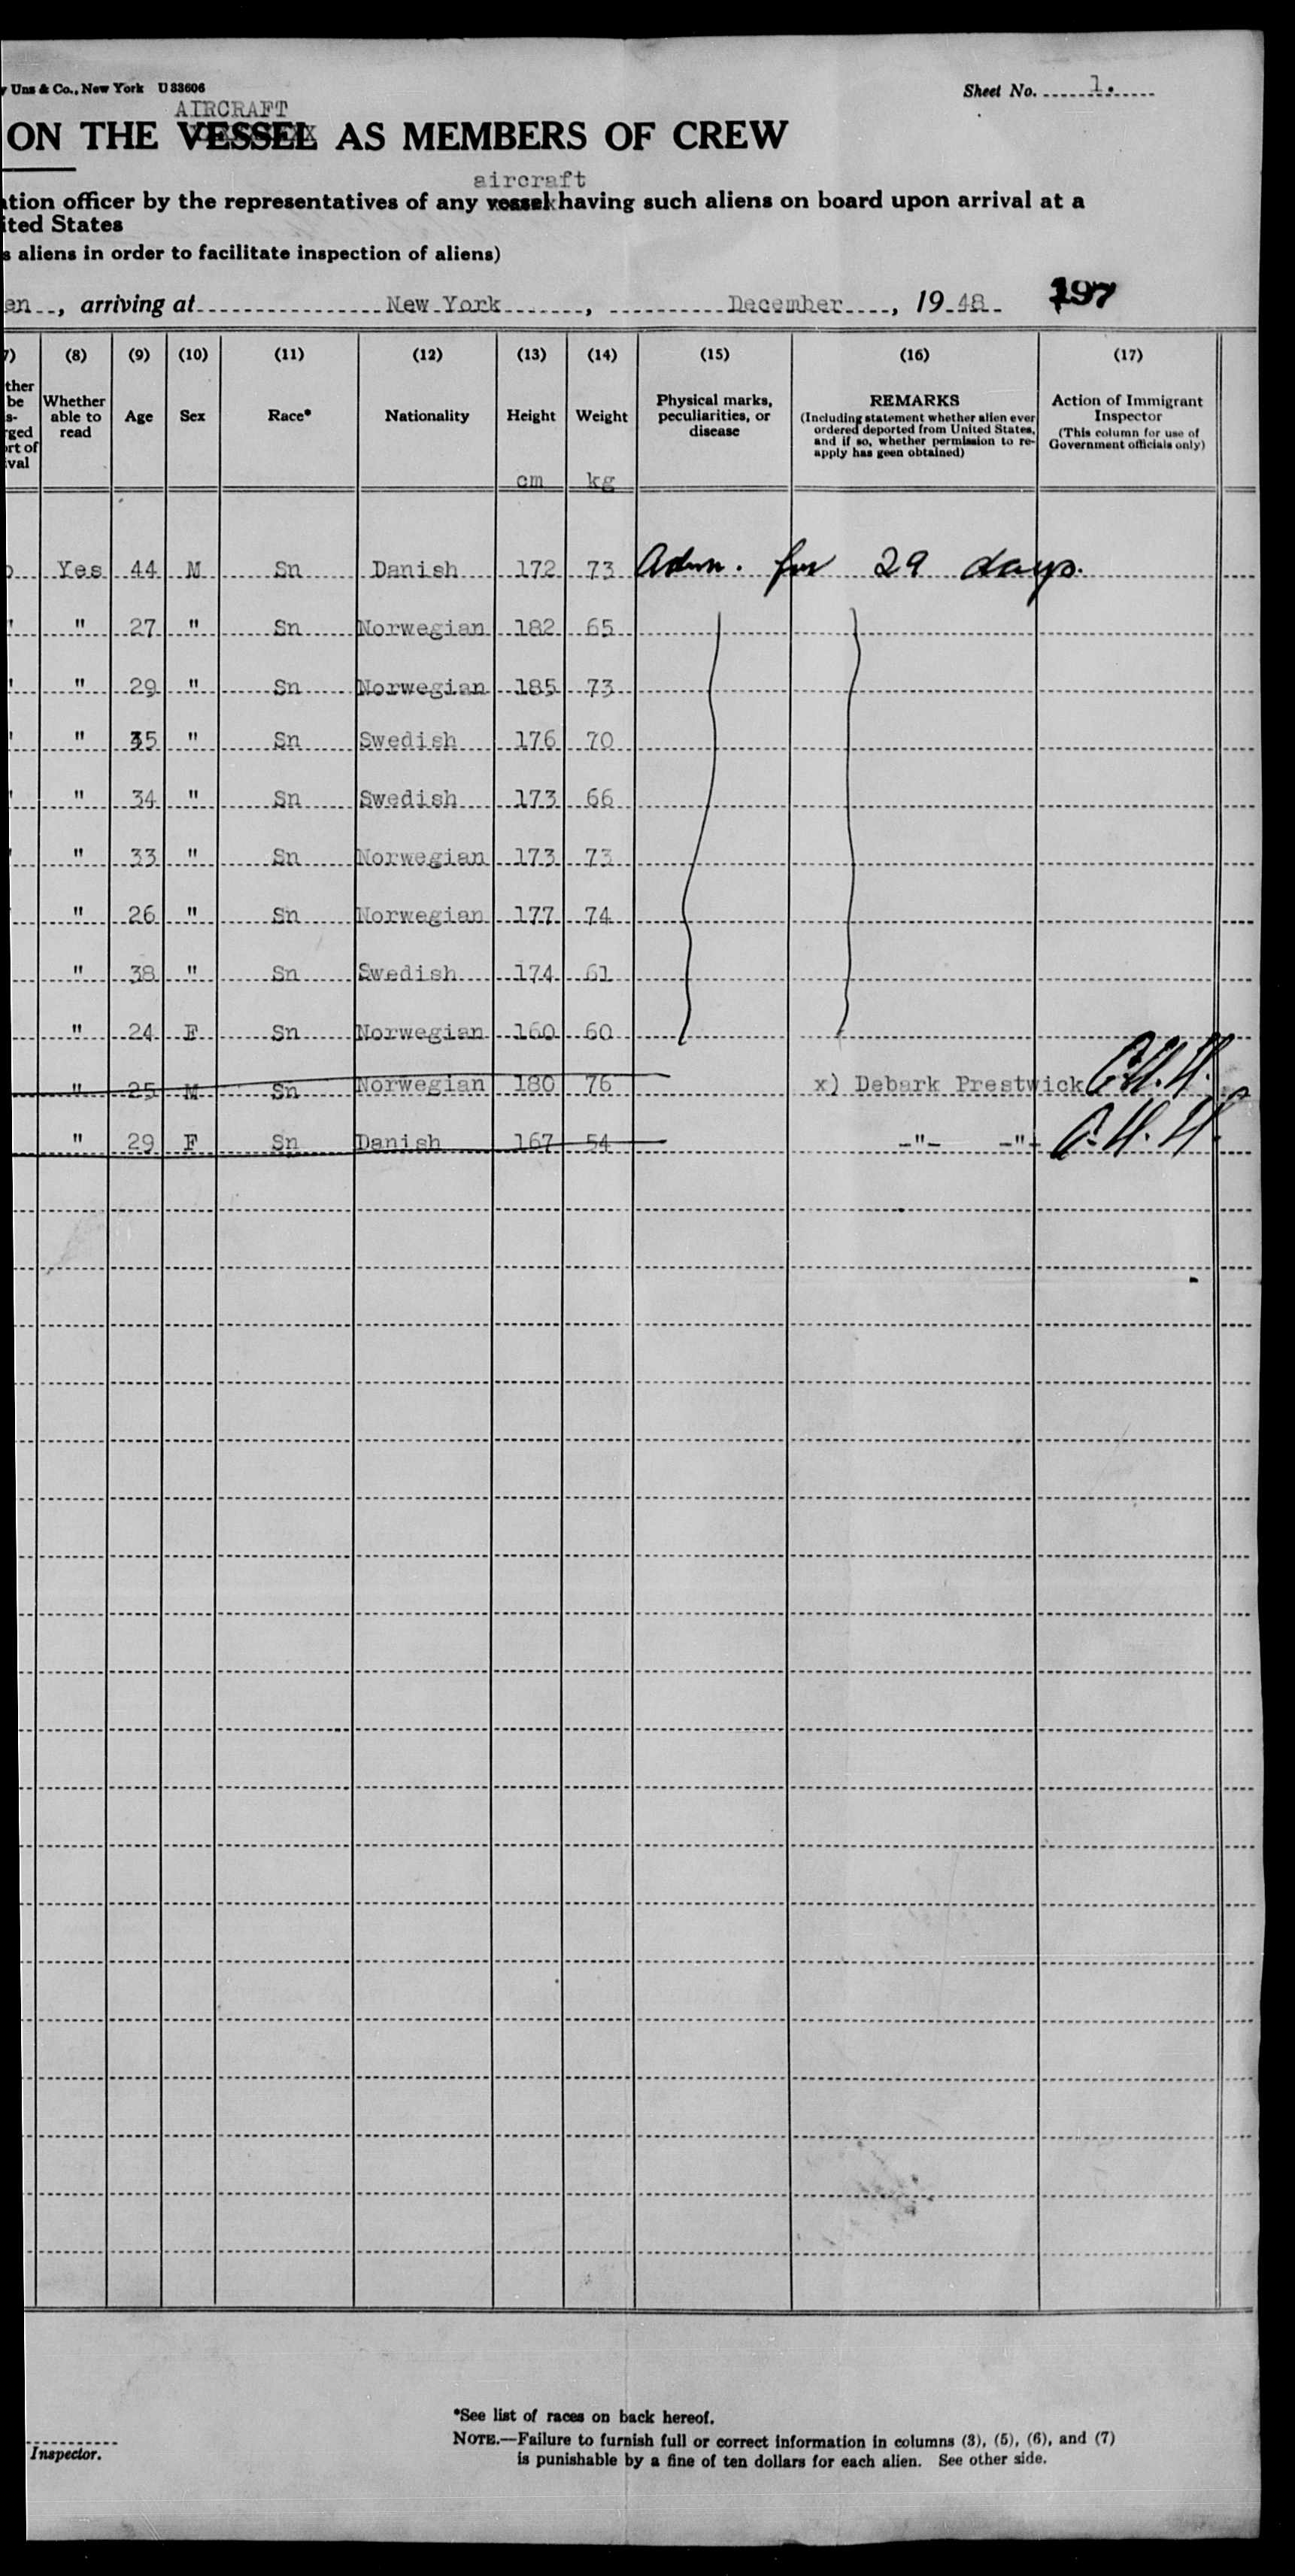 Uns & Co., New York U 33606
Sheet No. 1.
AIRCRAFT
ON THE VESSEL AS MEMBERS OF CREW
aircraft
ation officer by the representatives of any vessel having such aliens on board upon arrival at a
ited States
s aliens in order to facilitate inspection of aliens)
en, arriving at New York, December, 19 48 197
7) (8) (9) (10) (11) (12) (13) (14) (15) (16) (17)
ther be s- rged ort of ival Whether able to read Age Sex Race* Nationality Height Weight Physical marks, peculiarities, or disease REMARKS (Including statement whether alien ever ordered deported from United States, and if so, whether permission to re-apply has geen obtained) Action of Immigrant Inspector (This column for use of Government officials only)
cm kg
o Yes 44 M Sn Danish 172 73 Adm. for 29 days.
" " 27 " Sn Norwegian 182 65
" " 29 " Sn Norwegian 185 73
" " 35 " Sn Swedish 176 70
" " 34 " Sn Swedish 173 66
" " 33 " Sn Norwegian 173 73
" 26 " Sn Norwegian 177 74
" 38 " Sn Swedish 174 61
" 24 F Sn Norwegian 160 60
" 25 M Sn Norwegian 180 76 x) Debark Prestwick
" 29 F Sn Danish 167 54 -"- -"-
*See list of races on back hereof.
NOTE.—Failure to furnish full or correct information in columns (3), (5), (6), and (7)
is punishable by a fine of ten dollars for each alien. See other side.
Inspector.